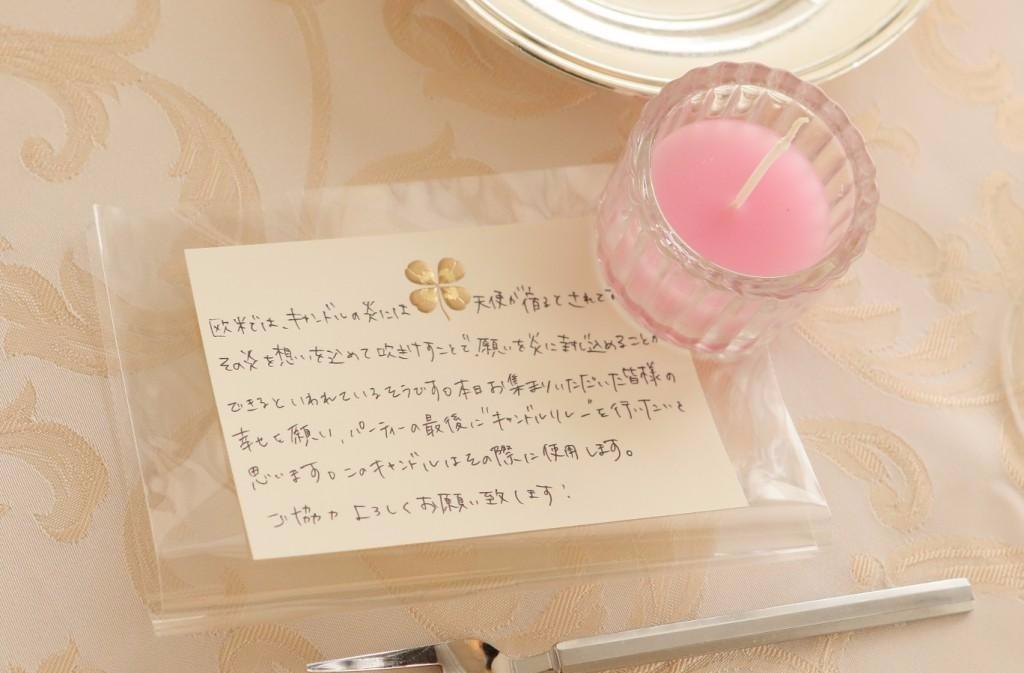 欧米では、キャンドルの炎には天使が宿るとされて
その炎を想いを込めて吹き消すことで、願いを炎に封じ込めることが
できるといわれているそうです。本日お集まりいただいた皆様の
幸せを願い、パーティーの最後に"キャンドルリレー"を行いたいと
思います。このキャンドルはその際に使用します。
ご協力よろしくお願い致します!